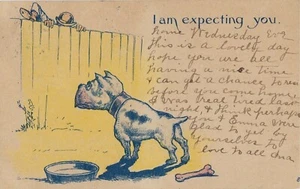 I am expecting you.
home Wednesday Eve
This is a lovely day
hope you are all
having a nice time
& can get a chance to rest
before you come home,
I was tired last
night, & think perhaps
you & Emma were
glad to get by
yourselves to
love to all